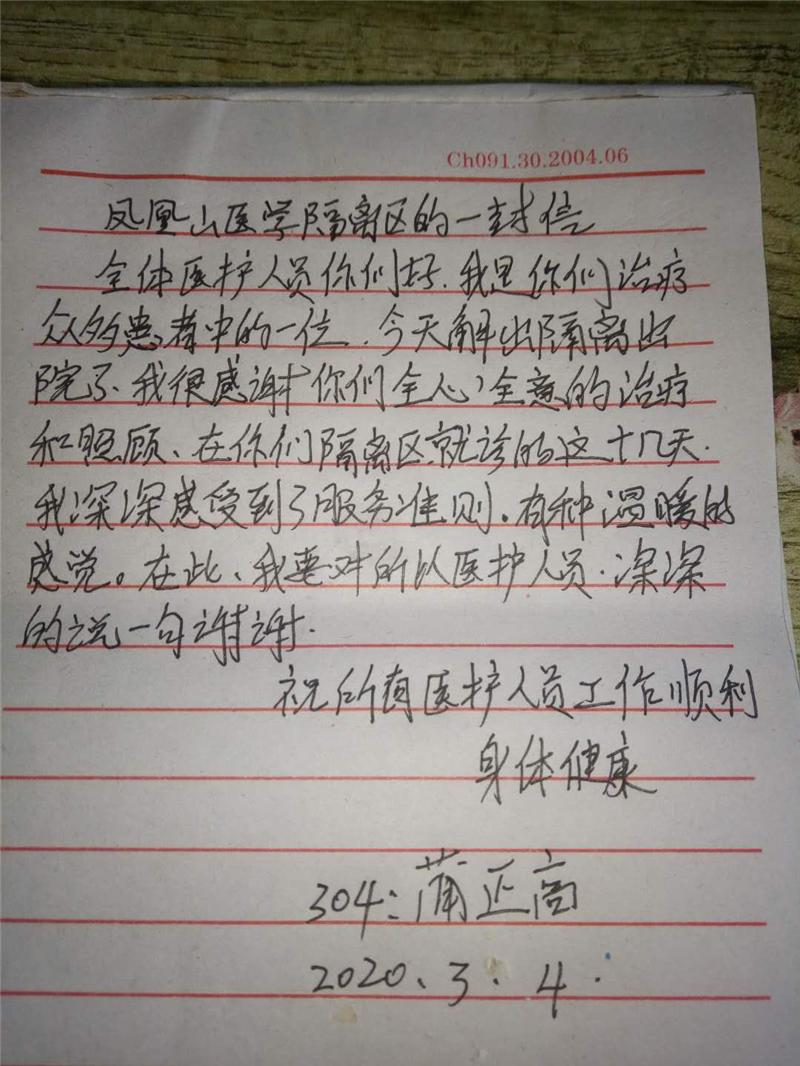 Ch091.30.2004.06
凤凰山医学隔离区的一封信
全体医护人员你们好.我是你们治疗
众多患者中的一位.今天解出隔离出
院了、我很感谢你们全心全意的治疗
和照顾、在你们隔离区就诊的这十几天.
我深深感受到了服务准则.有种温暖的
感觉。在此、我要对所以医护人员.深深
的说一句谢谢.
祝所有医护人员工作顺利
身体健康
304:蒲正高
2020、3.4.